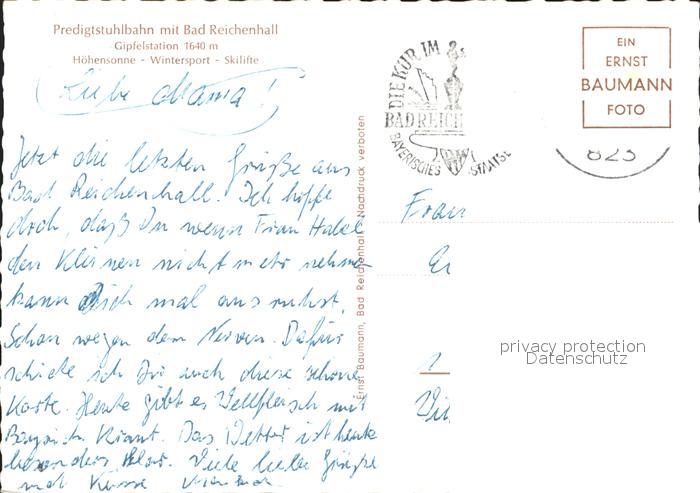 Predigtstuhlbahn mit Bad Reichenhall
Gipfelstation 1640 m
Höhensonne - Wintersport - Skilifte
Liebe Mama!
Jetzt die letzten Grüße aus
Bad Reichenhall. Ich hoffe
doch, daß Du wenn Frau
den Kleinen nicht mehr nehmen
kann Dich mal ausruhst,
Schon wegen den Nerven. Dafür
schicke ich Dir auch diese schöne
Karte. Heute gibt es Wellfleisch mit
Kraut. Das Wetter ist heute
besonders klar. Viele liebe Grüße
und Küsse
Ernst Baumann, Bad Reichenhall Nachdruck verboten
DIE KUR IM
BAD REICH
BAYERISCHES STAATSB
EIN
ERNST
BAUMANN
FOTO
823
Frau
privacy protection
Datenschutz